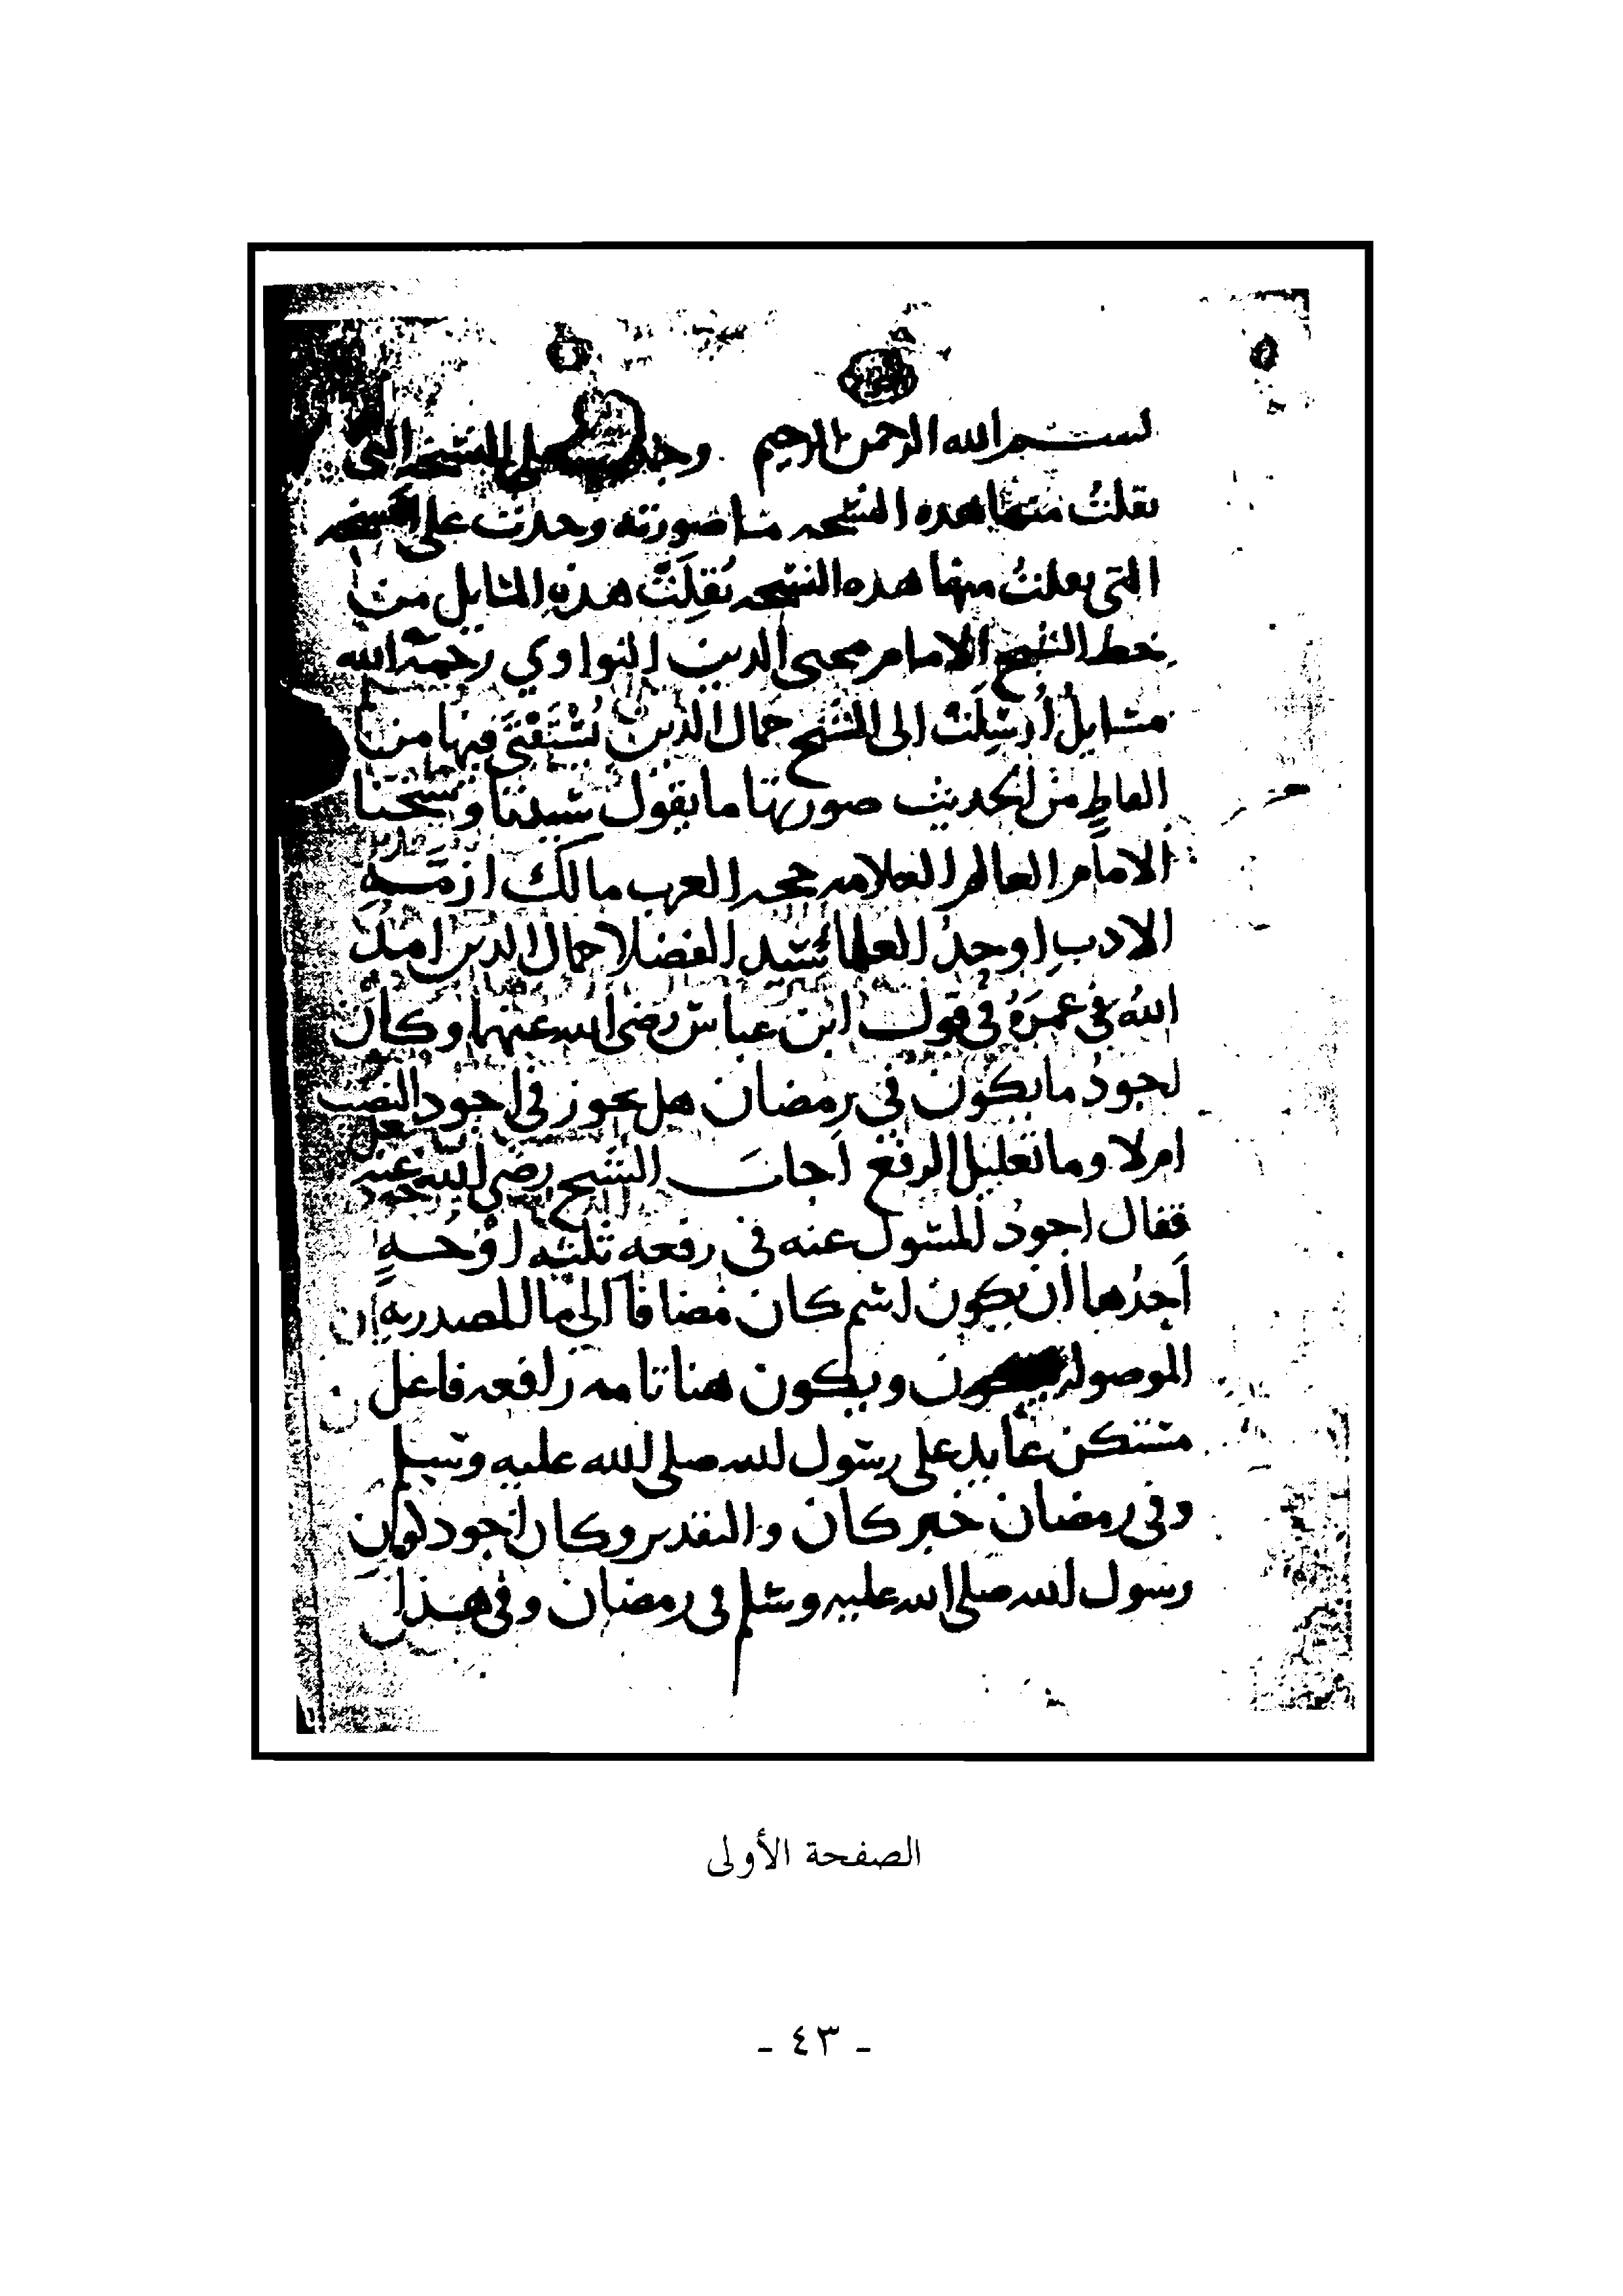 بسم الله الرحمن الرحيم وجدت على النسخه التي
نقلت منها هذه النسخه ما صورته وجدت على النسخه
التي نقلتُ منها هذه النسخه نُقِلَتْ هذه المسايل من
خط الشيخ الامام محيى الدين النواوي رحمه الله
مسايلُ أُرسِلَت الى الشيخ جمال الدين يُسْتَفْتَى فيها من
الفاظٍ من الحديث صورتها ما يقول سيدنا وشيخنا
الامام العالم العلامه حجه العرب مالك ازمّه
الادبِ اوحدُ العلما سيد الفضلا جمال الدين امدَّ
اللهُ في عمرَهُ في قول ابن عباس رضي الله عنهما وكان
اجودُ ما يكون في رمضان هل يجوز في اجود النصب
ام لا وما تعليل الرفع اجابَ الشيخ رضي الله عنه
فقال اجودُ المسول عنه في رفعه ثلثه اوْجُهٍ
اَحدُها ان يكون اسم كان مضافا الى ما المصدريه
الموصوله ويكون هنا تامه رافعه فاعل
مستكن عايد على رسول الله صلى الله عليه وسلم
وفي رمضان خبر كان والتقدير وكان اجود كون
رسول الله صلى الله عليه وسلم في رمضان وفي هذا
الصفحة الأولى
- ٤٣ -